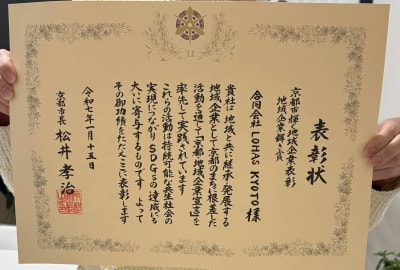 表彰状
京都市輝く地域企業表彰
地域企業輝き賞
合同会社 LOHAS KYOTO 様
貴社は 地域と共に継承・発展する
地域企業として京都のまちに根差した
活動を通じて「京都・地域企業宣言」を
率先して実践されています
これらの活動は持続可能な共生社会の
実現につながり SDGsの達成にも
大いに寄与するものです よって
その御功績をたたえここに表彰します
令和七年一月十五日
京都市長 松井孝治